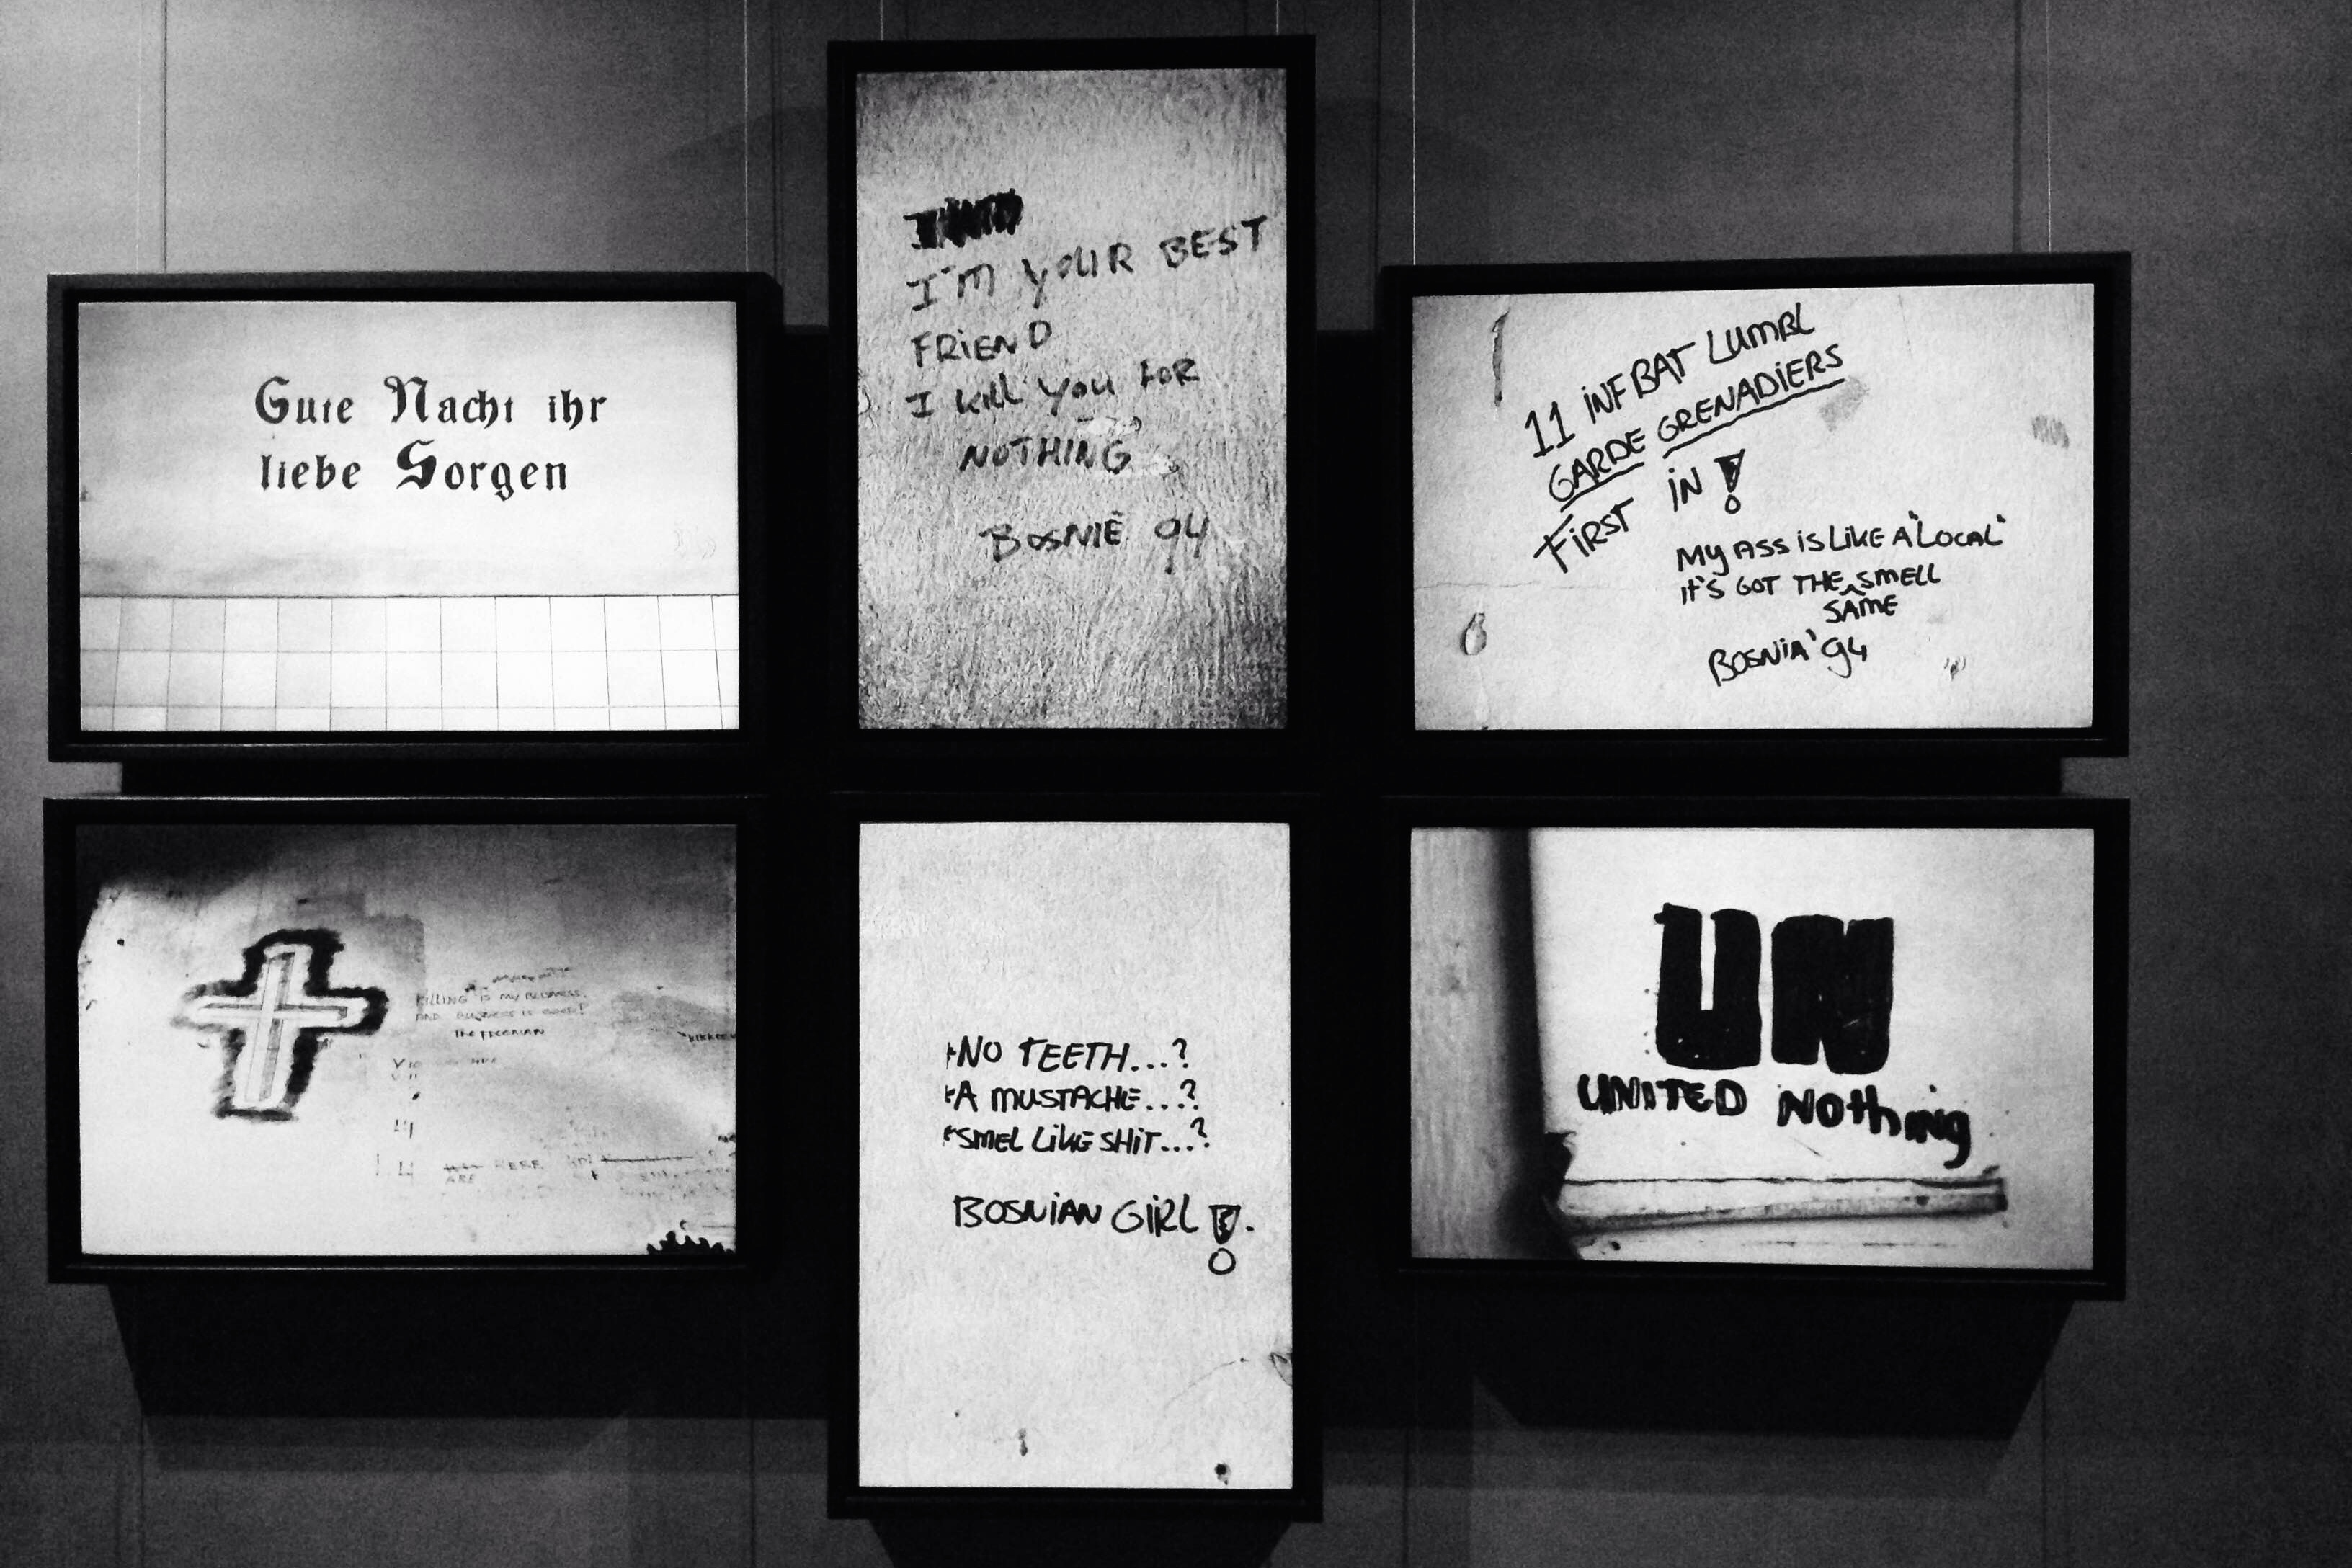 Gute Nacht ihr
liebe Sorgen
I'M YOUR BEST
FRIEND
I kill you FOR
NOTHING
BOSNIË 94
11 INFBAT LUMBL
GARDE GRENADIERS
FIRST IN !
MY ASS IS LIKE A "LOCAL"
it's GOT THE SMELL
SAME
BOSNIA '94
KILLING IS MY BUSINESS,
AND BUSINESS IS GOOD!
HERE
ARE
NO TEETH...?
A MUSTACHE...?
SMEL LIKE SHIT...?
BOSNIAN GIRL!
UN
UNITED NOthing